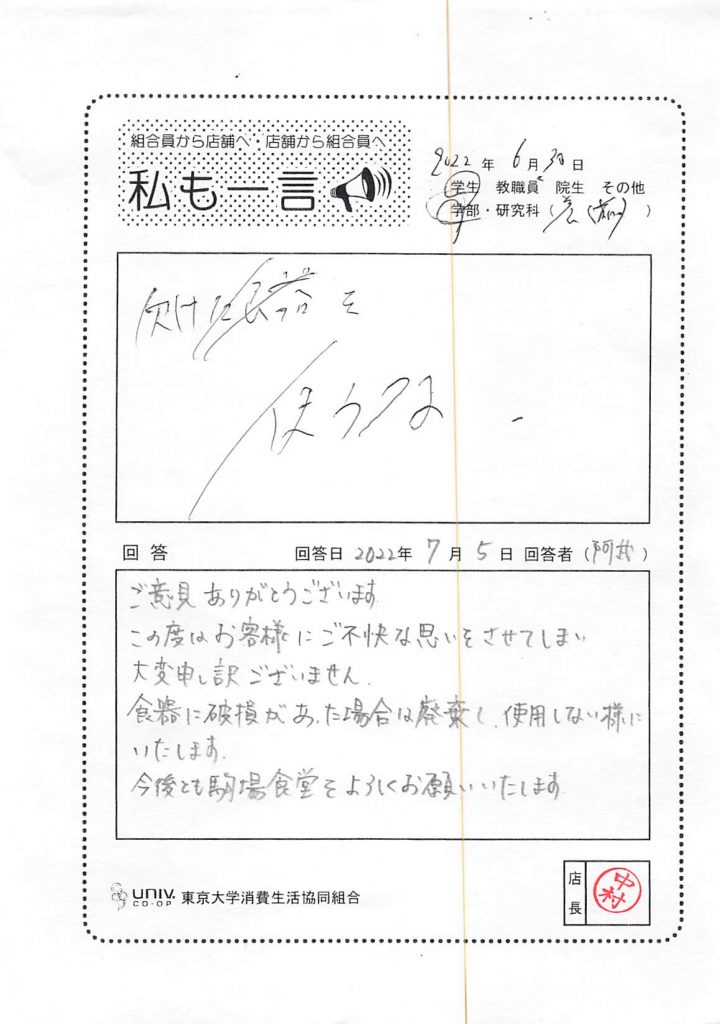 組合員から店舗へ・店舗から組合員へ
私も一言
2022年 6月30日
学生 教職員 院生 その他
学部・研究科( )
欠けた食器を
使うな
回答 回答日 2022年 7月5日 回答者( )
ご意見ありがとうございます。
この度はお客様にご不快な思いをさせてしまい
大変申し訳ございません。
食器に破損があった場合は廃棄し、使用しない様に
いたします。
今後とも駒場食堂をよろしくお願いいたします。
UNIV. CO-OP 東京大学消費生活協同組合
店長 中村